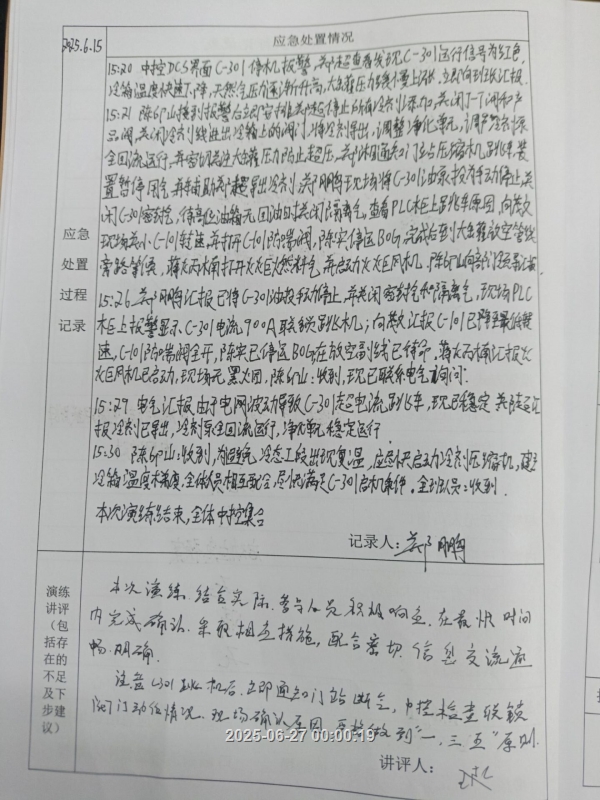 应急处置情况
2025.6.15
15:20 中控DCS界面C-301停机报警,郑超查看发现C-301运行信号为红色,
冷箱温度快速下降,天然气压力逐渐升高,大罐压力缓慢上涨,立即向班长汇报.
15:21 陈矿山接到报警后立即安排郑超停止所有冷剂添加,关闭J-T阀和产
品阀,关闭冷剂线进出冷箱上的阀门,将冷剂导出,调整净化单元,调节冷剂泵
全回流运行,并密切关注大罐压力防止超压,通知门站压缩机已跳车,装
置暂停用气,并辅助郑超导出冷剂,郑鹏现场将C-301油泵投为手动停止,关
闭C-301密封气,待高位油箱无回油时关闭隔离气,查看PLC柜上跳车原因,
现场减小C-101转速,并打开C-101防喘阀,陈实停运BOG,完成后到大罐放空管线
旁路等候,蒋文丙楠打开火炬燃料气,并启动火炬风机,
应急
处置
过程
记录
15:26 郑鹏汇报已将C-301油投手动停止,并关闭密封气和隔离气,现场PLC
柜上报警显示C-301电流900A联锁跳机;汇报C-101已降至最低转
速,C-101防喘阀全开,陈实已停运BOG在放空副线已待命,蒋文丙楠汇报火
炬风机已启动,现场无黑火团,陈矿山:收到,现已联系电气询问.
15:29 电气汇报由于电网波动导致C-301超电流跳车,现已稳定.郑超汇
报冷剂已导出,冷剂泵全回流运行,净化单元稳定运行
15:30 陈矿山:收到,为避免冷态工段出现复温,应尽快启动冷剂压缩机,建立
冷箱温度梯度,全体人员相互配合,尽快满足C-301启机条件.全班人员:收到.
本次演练结束,全体中控集合
记录人:郑鹏
演练
讲评
(包
括存
在的
不足
及下
步建
议)
本次演练,结合实际,参与人员积极响应,在最快时间
内完成确认,采取相应措施,配合密切,信息交流通
畅.明确.
注意C301跳机后,立即通知门站断气,中控检查联锁
阀门动作情况.现场确认原因,严格做到"一,三五"原则.
2025-06-27 00:00:19
讲评人: